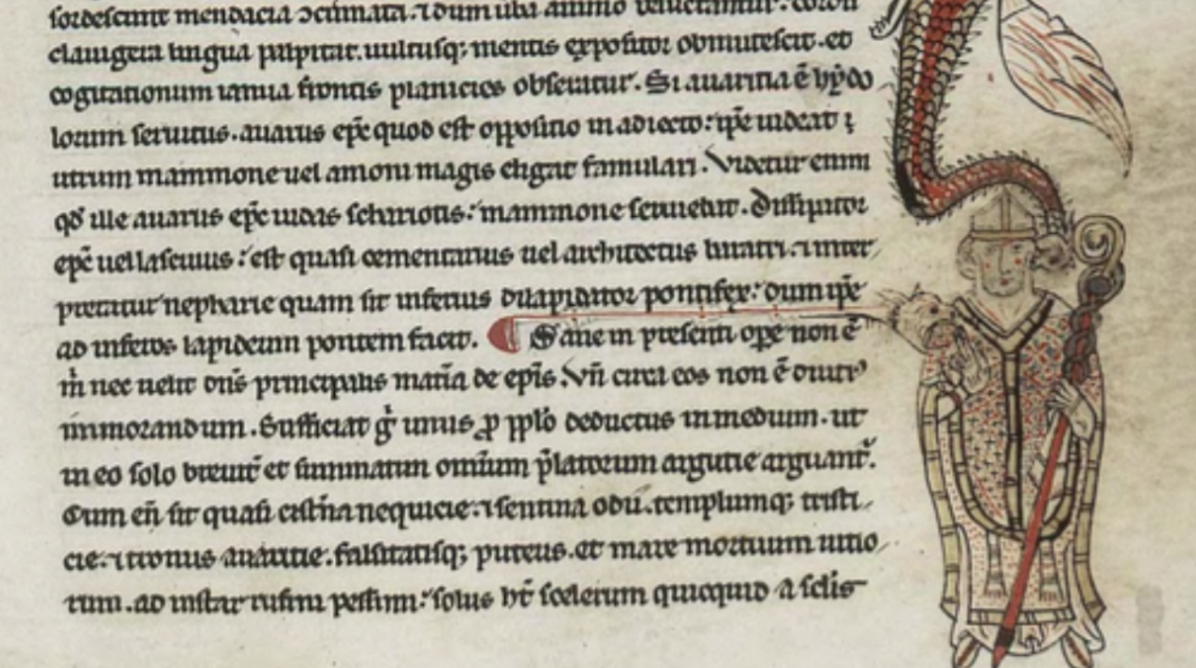 sordescunt mendacia ⁊ dum uba animo
clauigera lingua palpitat. uultusq; mentis expositor obmutescit. et
cogitationum ianua frontis planicies obseratur. Si auaritia ē ydo
lorum seruitus. auarus epc̄ quod est oppositio in adiecto: ip̄e uideat ;
utrum mammone uel amoni magis eligat famulari. Videtur enim
qđ ille auarus epc̄ iudas schariotis: mammone seruiebat. Dissipator
epc̄ uel lasciuus: est quasi cementarius uel architectus baratri. ⁊ inter
pretatur nepharie quam sit inferius dilapidator pontifex: dum ip̄e
ad inferos lapideum pontem facit. Sane in presenti oꝑe non ē
m̊ nec uelit dn̄s principalis mat̄ia de epīs. Vn̄ circa eos non ē diuti᾿
immorandum. Sufficiat g̊ unus ꝓ pp̄lo deductus in medium. ut
in eo solo breuit̄ et summatim omīum p̄latorum argutie arguant᾿.
Cum en̄ sit quasi cist̄na nequicie. ⁊ sentina odii. templumq; tristi
cie. ⁊ tronus auaritie. falsitatisq; puteus. et mare mortuum uitio
rum. ad instar rufini pessimi: solus ht̄ scelerum quicquid a sc̄lis